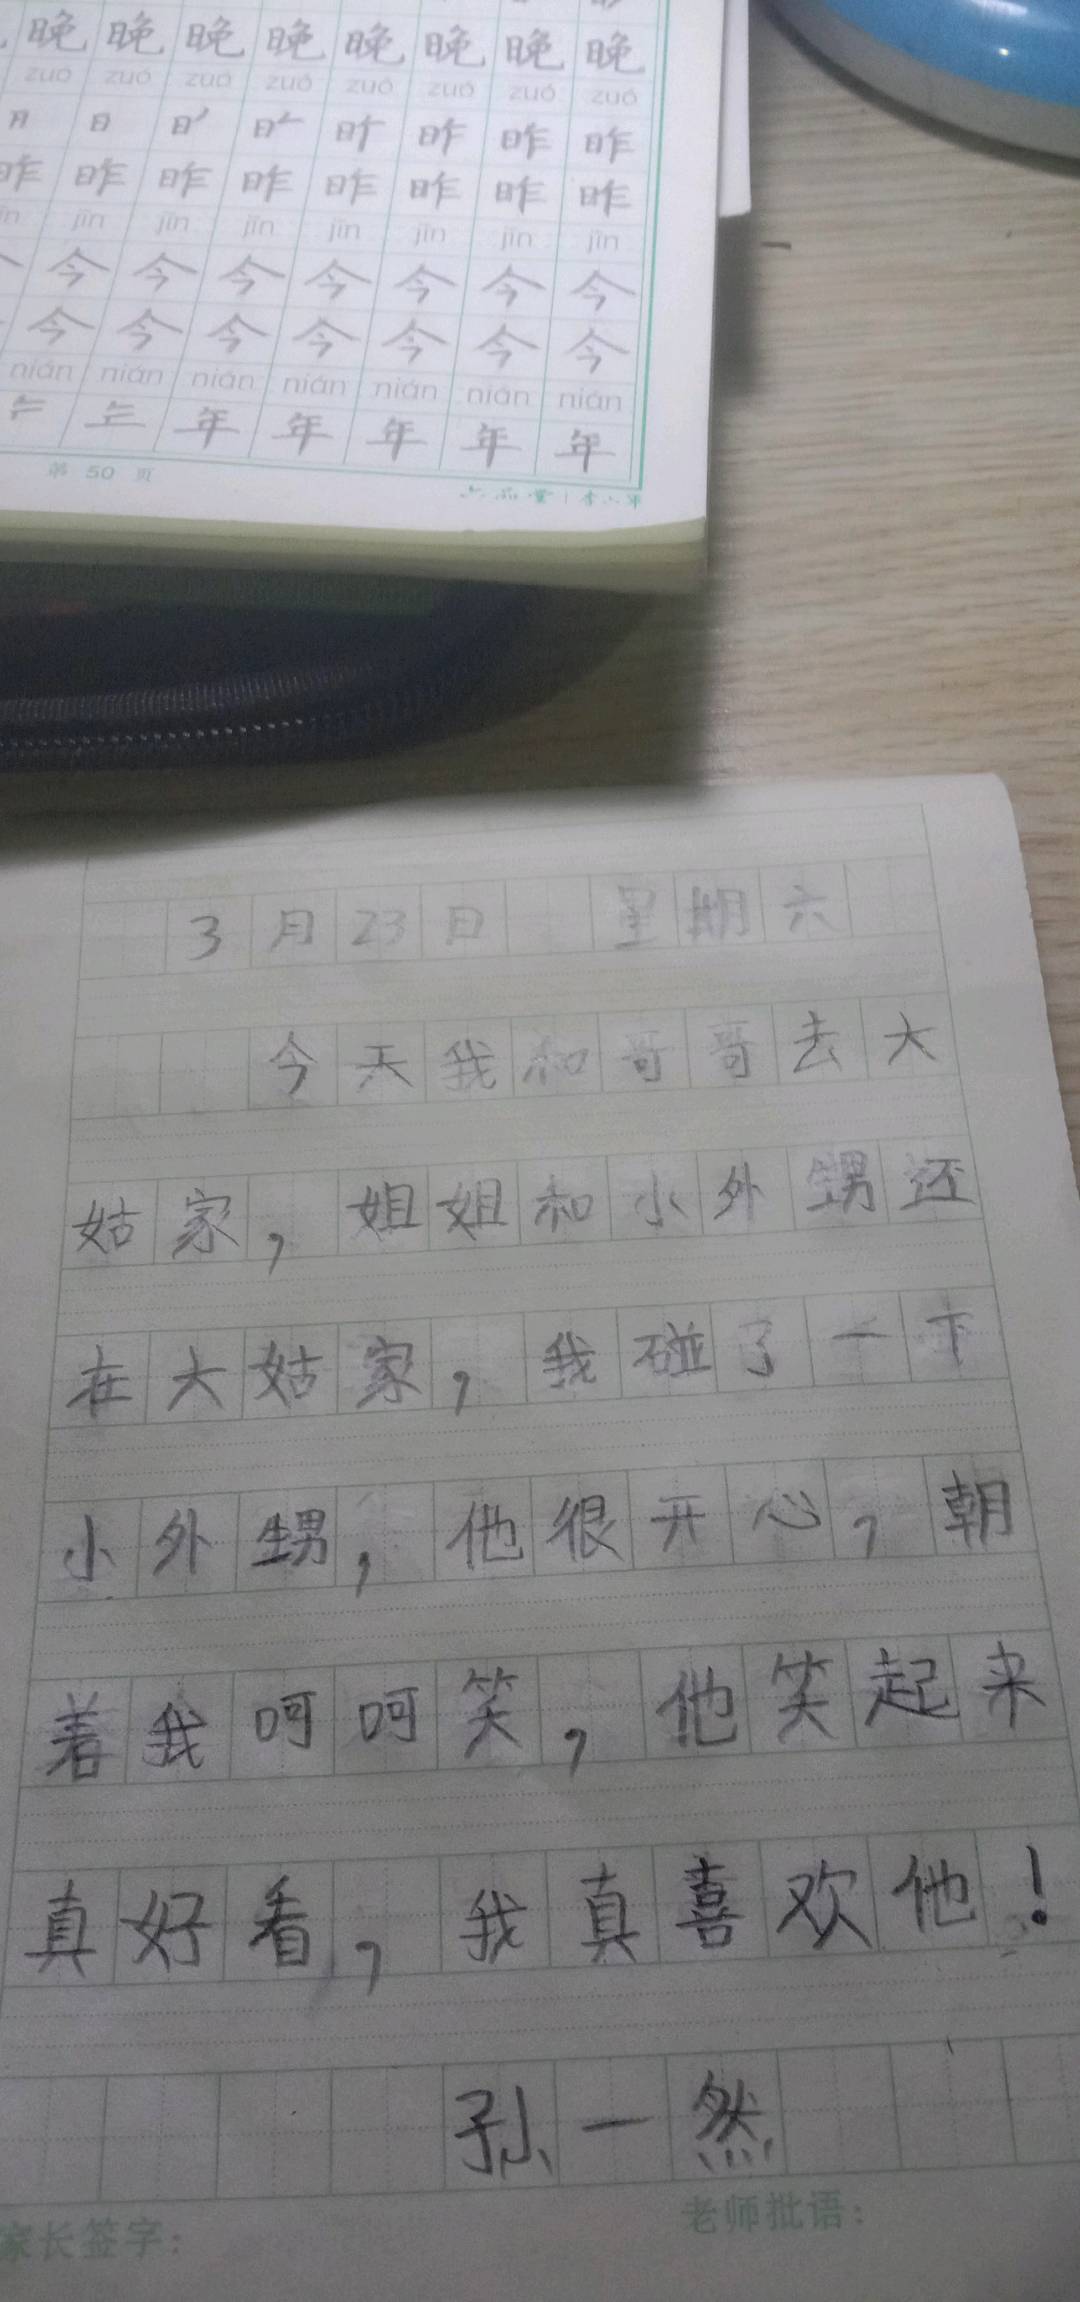 晚 晚 晚 晚 晚 晚 晚 晚
zuó zuó zuó zuó zuó zuó zuó zuó
日 日 昨 昨 昨 昨
昨 昨 昨 昨 昨 昨 昨 昨
jīn jīn jīn jīn jīn jīn jīn
今 今 今 今 今 今 今
今 今 今 今 今 今 今
nián nián nián nián nián nián nián
年 年 年 年 年
第 50 页
六品堂
3月23日 星期六
今天我和哥哥去大
姑家，姐姐和小外甥还
在大姑家，我碰了一下
小外甥，他很开心，朝
着我呵呵笑，他笑起来
真好看，我真喜欢他！
孙一然
家长签字：
老师批语：